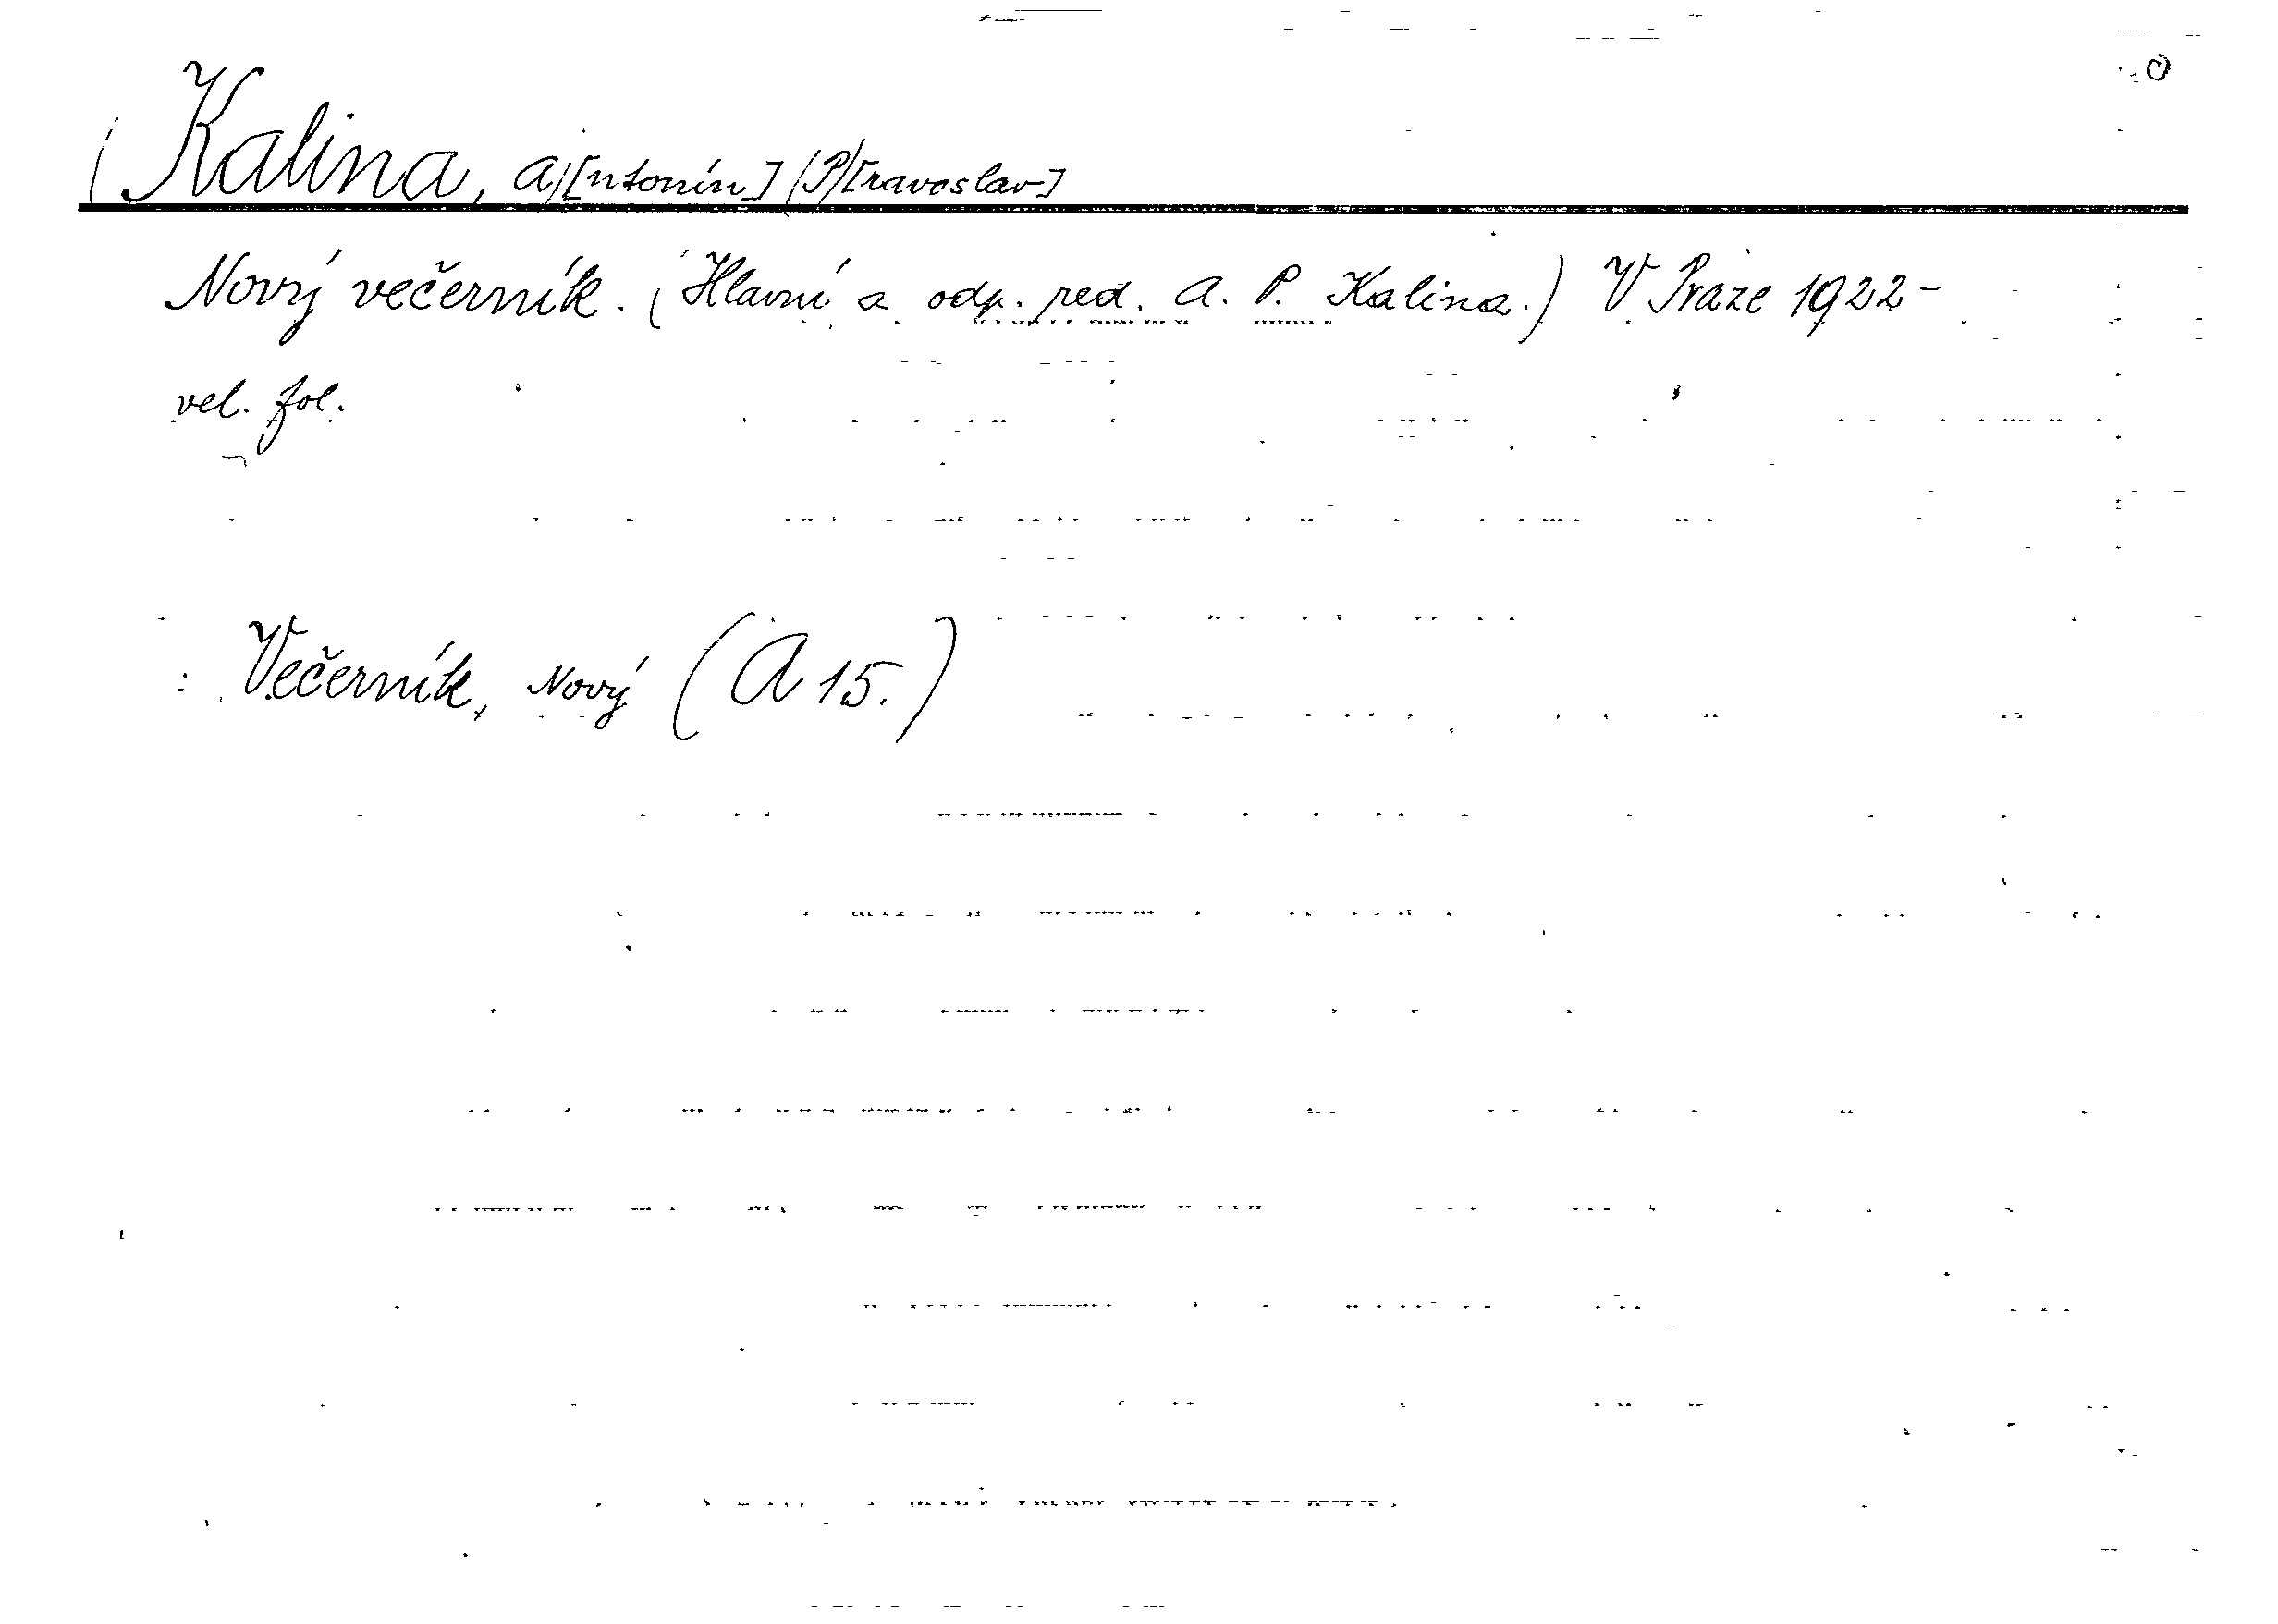 (Kalina, A)[ntonín] (P)[ravoslav]
Nový večerník. (Hlavní a odp. red. A. P. Kalina.) V Praze 1922-
vel. fol.
: Večerník, Nový (A 15.)